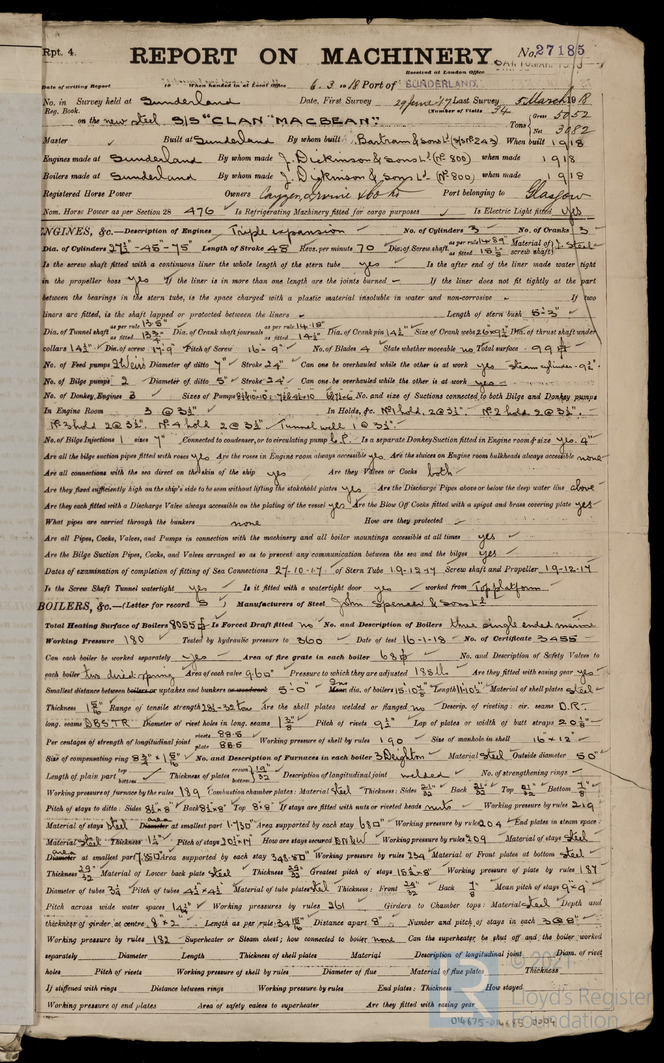 Rpt. 4.
REPORT ON MACHINERY No. 27185
Received at London Office
Date of writing Report 19 When handed in at Local Office 6. 3. 1918 Port of SUNDERLAND.
No. in Survey held at Sunderland Date, First Survey 29 June '17 Last Survey 5 March 1918
Reg. Book. (Number of Visits 34
on the new steel S/S "CLAN "MACBEAN". Tons Gross 5052 Net 3082
Master Built at Sunderland By whom built Bartram & Sons Ld (S/S No 243) When built 1918
Engines made at Sunderland By whom made J. Dickinson & Sons Ld (No 800) when made 1918
Boilers made at Sunderland By whom made J. Dickinson & Sons Ld (No 800) when made 1918
Registered Horse Power Owners Cayzer, Irvine & Co Ld Port belonging to Glasgow
Nom. Horse Power as per Section 28 476 Is Refrigerating Machinery fitted for cargo purposes Is Electric Light fitted yes
ENGINES, &c.—Description of Engines Triple expansion No. of Cylinders 3 No. of Cranks 3
Dia. of Cylinders 27½"-45"-75" Length of Stroke 48 Revs. per minute 70 Dia. of Screw shaft as per rule 14.89" as fitted Material of screw shaft I. Steel
Is the screw shaft fitted with a continuous liner the whole length of the stern tube yes Is the after end of the liner made water tight
in the propeller boss yes If the liner is in more than one length are the joints burned If the liner does not fit tightly at the part
between the bearings in the stern tube, is the space charged with a plastic material insoluble in water and non-corrosive If two
liners are fitted, is the shaft lapped or protected between the liners Length of stern bush 5'-3"
Dia. of Tunnel shaft as per rule 13.5" as fitted Dia. of Crank shaft journals as per rule 14.18" as fitted 14½" Dia. of Crank pin 14½" Size of Crank webs Dia. of thrust shaft under
collars 14½" Dia. of screw 17'-9" Pitch of Screw 16'-9" No. of Blades 4 State whether moveable no Total surface 99
No. of Feed pumps 2 Weirs Diameter of ditto 7" Stroke 24" Can one be overhauled while the other is at work yes Steam cylinder 9½"
No. of Bilge pumps 2 Diameter of ditto 5" Stroke 24" Can one be overhauled while the other is at work yes
No. of Donkey Engines 3 Sizes of Pumps No. and size of Suctions connected to both Bilge and Donkey pumps
In Engine Room 3 @ 3½" In Holds, &c. No 1 hold, 2 @ 3½". No 2 hold 2 @ 3½".
No 3 hold 2 @ 3½". No 4 hold 2 @ 3½". Tunnel well 1 @ 3½".
No. of Bilge Injections 1 sizes 7" Connected to condenser, or to circulating pump C.P. Is a separate Donkey Suction fitted in Engine room & size yes. 4"
Are all the bilge suction pipes fitted with roses yes Are the roses in Engine room always accessible yes Are the sluices on Engine room bulkheads always accessible none
Are all connections with the sea direct on the skin of the ship yes Are they Valves or Cocks both
Are they fixed sufficiently high on the ship's side to be seen without lifting the stokehold plates yes Are the Discharge Pipes above or below the deep water line above
Are they each fitted with a Discharge Valve always accessible on the plating of the vessel yes Are the Blow Off Cocks fitted with a spigot and brass covering plate yes
What pipes are carried through the bunkers none How are they protected
Are all Pipes, Cocks, Valves, and Pumps in connection with the machinery and all boiler mountings accessible at all times yes
Are the Bilge Suction Pipes, Cocks, and Valves arranged so as to prevent any communication between the sea and the bilges yes
Dates of examination of completion of fitting of Sea Connections 27.10.17 of Stern Tube 19-12-17 Screw shaft and Propeller 19-12-17
Is the Screw Shaft Tunnel watertight yes Is it fitted with a watertight door yes worked from Top platform
BOILERS, &c.—(Letter for record S) Manufacturers of Steel John Spencer & Sons Ld
Total Heating Surface of Boilers 8055 Is Forced Draft fitted no No. and Description of Boilers three single ended marine
Working Pressure 180 Tested by hydraulic pressure to 360 Date of test 16-1-18 No. of Certificate 3455
Can each boiler be worked separately yes Area of fire grate in each boiler 68 No. and Description of Safety Valves to
each boiler two direct spring Area of each valve 9.60" Pressure to which they are adjusted 185 lb Are they fitted with easing gear yes
Smallest distance between boilers or uptakes and bunkers or woodwork 5'-0" Mean dia. of boilers Length Material of shell plates steel
Thickness 1 5/16 Range of tensile strength 28½-32 tons Are the shell plates welded or flanged no Descrip. of riveting: cir. seams D.R.
long. seams DBSTR Diameter of rivet holes in long. seams 1 3/8" Pitch of rivets 9½" Lap of plates or width of butt straps 20⅛"
Per centages of strength of longitudinal joint rivets 88.5 plate 88.5 Working pressure of shell by rules 190 Size of manhole in shell 16"×12"
Size of compensating ring No. and Description of Furnaces in each boiler 3 Deighton Material steel Outside diameter 50"
Length of plain part top bottom Thickness of plates crown bottom 19/32 Description of longitudinal joint welded No. of strengthening rings
Working pressure of furnace by the rules 189 Combustion chamber plates: Material steel Thickness: Sides 21/32 Back 21/32 Top 21/32 Bottom 7/8
Pitch of stays to ditto: Sides Back Top If stays are fitted with nuts or riveted heads nuts Working pressure by rules 219
Material of stays steel Diameter area at smallest part 1.730" Area supported by each stay 68.0" Working pressure by rules 204 End plates in steam space:
Material steel Thickness Pitch of stays How are stays secured DN&W Working pressure by rules 209 Material of stays steel
Diameter area at smallest part Area supported by each stay 348.50" Working pressure by rules 234 Material of Front plates at bottom steel
Thickness 29/32 Material of Lower back plate steel Thickness 29/32 Greatest pitch of stays Working pressure of plate by rules 187
Diameter of tubes 3¼ Pitch of tubes 4½"×4½" Material of tube plates steel Thickness: Front Back 7/8 Mean pitch of stays 9"×9"
Pitch across wide water spaces 14½" Working pressures by rules 261 Girders to Chamber tops: Material steel Depth and
thickness of girder at centre 8"×2" Length as per rule Distance apart 8" Number and pitch of stays in each 3 @ 8"
Working pressure by rules 182 Superheater or Steam chest; how connected to boiler none Can the superheater be shut off and the boiler worked
separately Diameter Length Thickness of shell plates Material Description of longitudinal joint Diam. of rivet
holes Pitch of rivets Working pressure of shell by rules Diameter of flue Material of flue plates Thickness
If stiffened with rings Distance between rings Working pressure by rules End plates: Thickness How stayed
Working pressure of end plates Area of safety valves to superheater Are they fitted with easing gear
© 2021
Lloyd's Register
Foundation